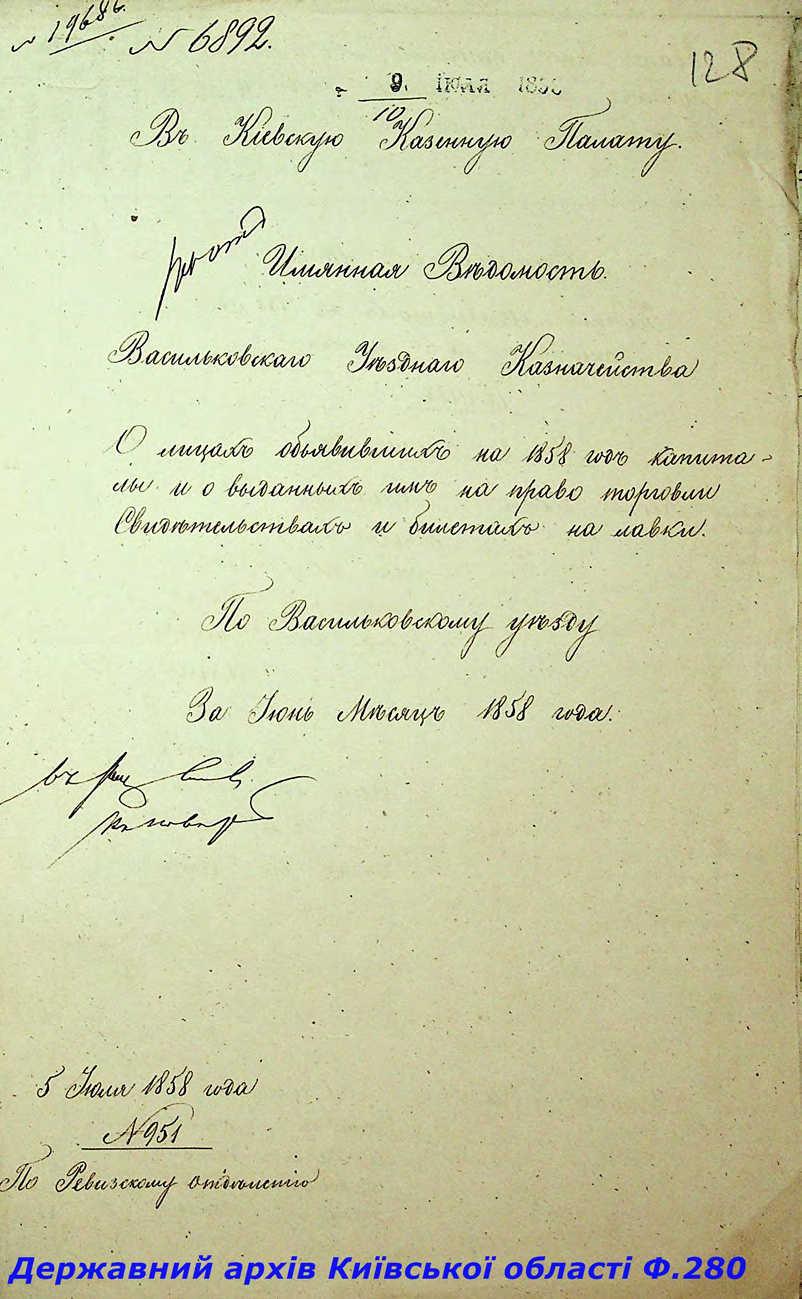 № 19686.
№ 6892.
128
9. ІЮЛЯ 185
10
Въ Кіевскую Казенную Палату.
Имянная Вѣдомость.
Васильковскаго Уѣзднаго Казначейства
О лицахъ объявившихъ на 1858 годъ капита-
лы и о выданныхъ имъ на право торговли
Свидѣтельствахъ и билетахъ на лавки.
По Васильковскому уѣзду
За Іюнь Мѣсяцъ 1858 года.
5 Іюля 1858 года
№ 951
По Ревизскому отдѣленію
Державний архів Київської області Ф.280